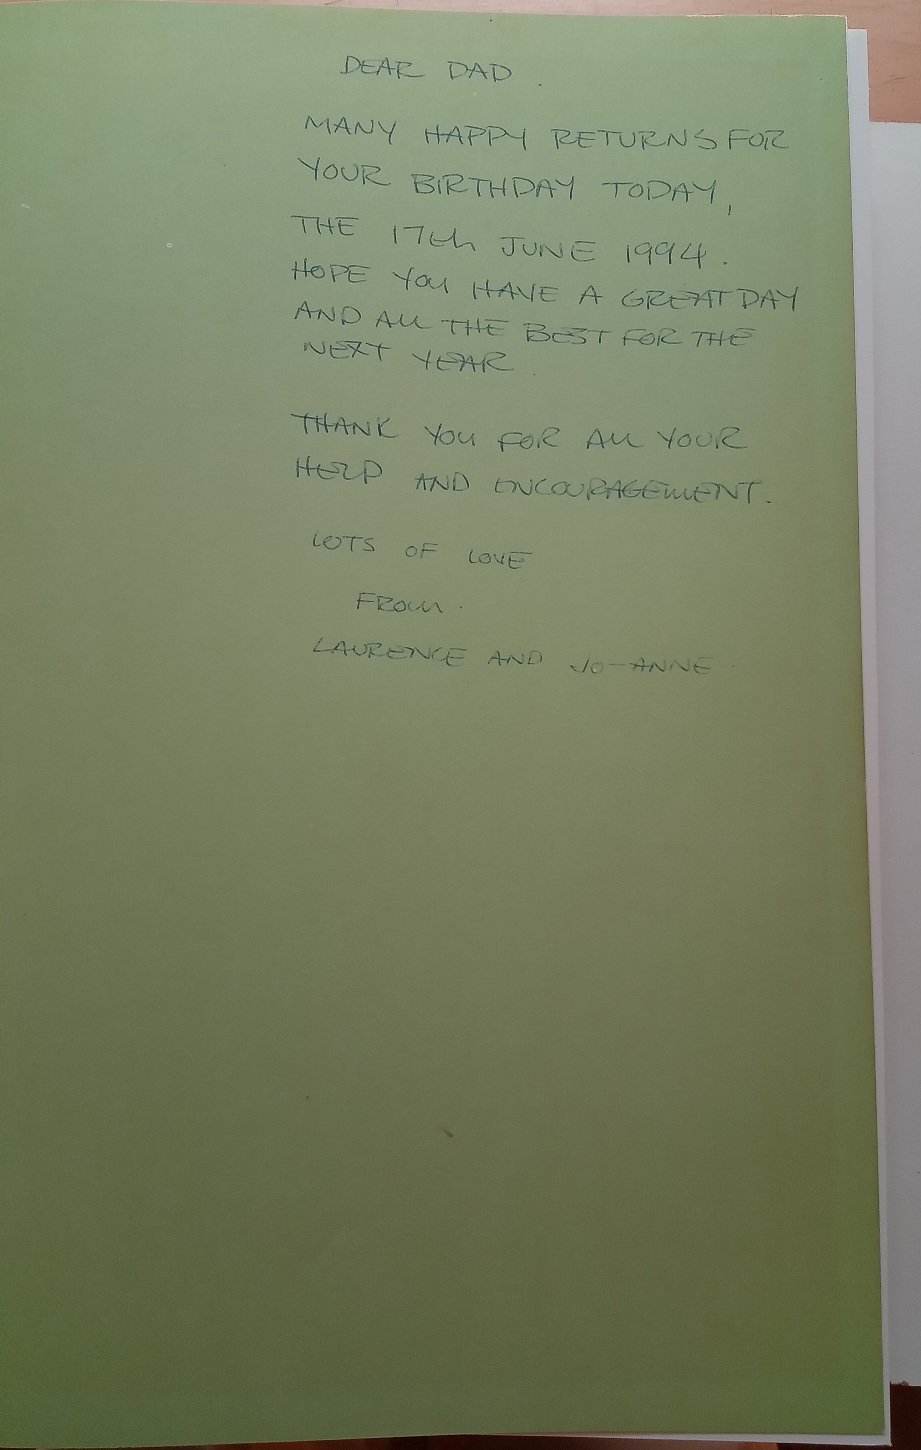 DEAR DAD.
MANY HAPPY RETURNS FOR
YOUR BIRTHDAY TODAY,
THE 17th JUNE 1994.
HOPE YOU HAVE A GREAT DAY
AND ALL THE BEST FOR THE
NEXT YEAR.
THANK YOU FOR ALL YOUR
HELP AND ENCOURAGEMENT.
LOTS OF LOVE
FROM.
LAURENCE AND JO-ANNE.